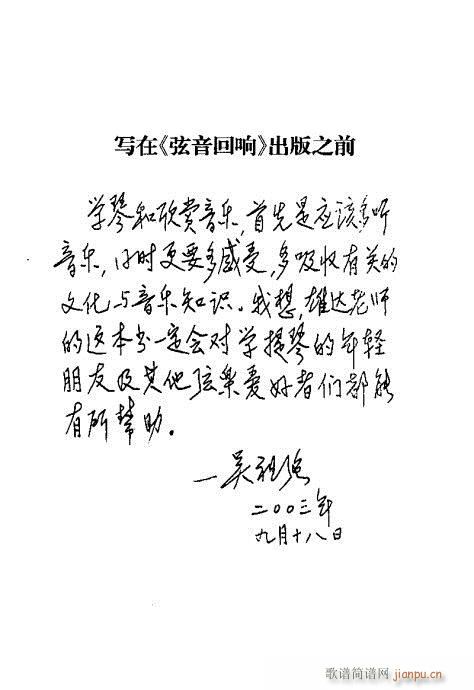 写在《弦音回响》出版之前
学琴和欣赏音乐,首先是应该多听
音乐,同时更要多感受,多吸收有关的
文化与音乐知识。我想,雄达老师
的这本书一定会对学提琴的年轻
朋友及其他弦乐爱好者们都能
有所帮助。
一吴祖强
二〇〇三年
九月十八日
歌谱简谱网
jianpu.cn